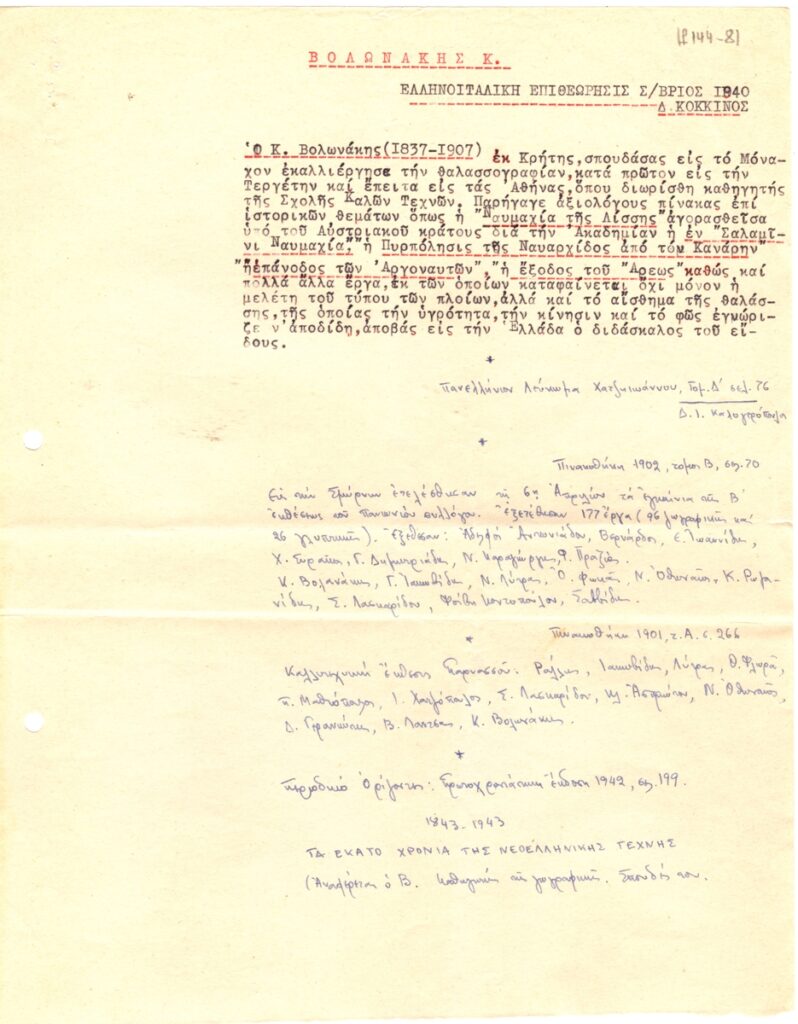 (φ 144-8)
ΒΟΛΩΝΑΚΗΣ Κ.
ΕΛΛΗΝΟΙΤΑΛΙΚΗ ΕΠΙΘΕΩΡΗΣΙΣ Σ/ΒΡΙΟΣ 1940
Δ.ΚΟΚΚΙΝΟΣ
Ὁ Κ. Βολωνάκης(1837-1907) ἐκ Κρήτης,σπουδάσας εἰς τό Μόνα-
χον ἐκαλλιέργησε τήν θαλασσογραφίαν,κατά πρῶτον εἰς τήν
Τεργέτην καί ἔπειτα εἰς τάς Ἀθήνας,ὅπου διωρίσθη καθηγητής
τῆς Σχολῆς Καλῶν Τεχνῶν. Παρήγαγε ἀξιολόγους πίνακας ἐπί
ἱστορικῶν θεμάτων ὅπως ἡ "Ναυμαχία τῆς Λίσσης"ἀγορασθεῖσα
ὑπό τοῦ Αὐστριακοῦ κράτους διά τήν Ἀκαδημίαν ἡ ἐν "Σαλαμῖ-
νι Ναυμαχία","ἡ Πυρπόλησις τῆς Ναυαρχίδος ἀπό τόν Κανάρην"
"ἡἐπάνοδος τῶν Ἀργοναυτῶν","ἡ ἔξοδος τοῦ "Ἄρεως"καθώς καί
πολλά ἄλλα ἔργα,ἐκ τῶν ὁποίων καταφαίνεται ὄχι μόνον ἡ
μελέτη τοῦ τύπου τῶν πλοίων,ἀλλά καί τό αἴσθημα τῆς θαλάσ-
σης,τῆς ὁποίας τήν ὑγρότητα,τήν κίνησιν καί τό φῶς ἐγνώρι-
ζε ν'ἀποδίδη,ἀποβάς εἰς τήν Ἑλλάδα ὁ διδάσκαλος τοῦ εἴ-
δους.
Πανελλήνιον Λεύκωμα Χατζηιωάννου, Τομ. Δ' σελ. 76
Δ. Ι. Καλογερόπουλος
Πινακοθήκη 1902, τόμος Β, σελ. 70
Εἰς τήν Σμύρνην ἐτελέσθησαν τῇ 6ῃ Ἀπριλίου τά ἐγκαίνια τῆς Β'
ἐκθέσεως τοῦ πανιωνίου συλλόγου. Ἐξετέθησαν 177 ἔργα (96 ζωγραφικῆς καί
26 γλυπτικῆς). Ἐξέθεσαν: Ἀδελφοί Ἀντωνιάδου, Βερνάρδος, Ε. Ἰωαννίδης,
Γ. Δημητριάδης,
Κ. Βολανάκης, Γ. Ἰακωβίδης, Ν. Λύτρας, Ν. Ὀθωναῖος, Κ. Ρωμα-
νίδης, Σ. Λασκαρίδου, Σαββίδης.
Πινακοθήκη 1901, τ. Α. σ. 266
Καλλιτεχνική ἔκθεσις Παρνασσοῦ: Ράλλης, Ἰακωβίδης, Λύτρας, Θ. Φλωρᾶ,
Π. Μαθιόπουλος, Σ. Λασκαρίδου, Κλ. Ἀσπριώτου, Ν. Ὀθωναῖος,
Δ. Γερανιώτης, Β. Λάντσας, Κ. Βολωνάκης.
Περιοδικό Ὁρίζοντες: Πρωτοχρονιάτικη ἔκδοση 1942, σελ. 199.
1843-1943
ΤΑ ΕΚΑΤΟ ΧΡΟΝΙΑ ΤΗΣ ΝΕΟΕΛΛΗΝΙΚΗΣ ΤΕΧΝΗΣ
(Ἀναφέρεται ὁ Β. καθηγητής τῆς ζωγραφικῆς. Σπουδές του.